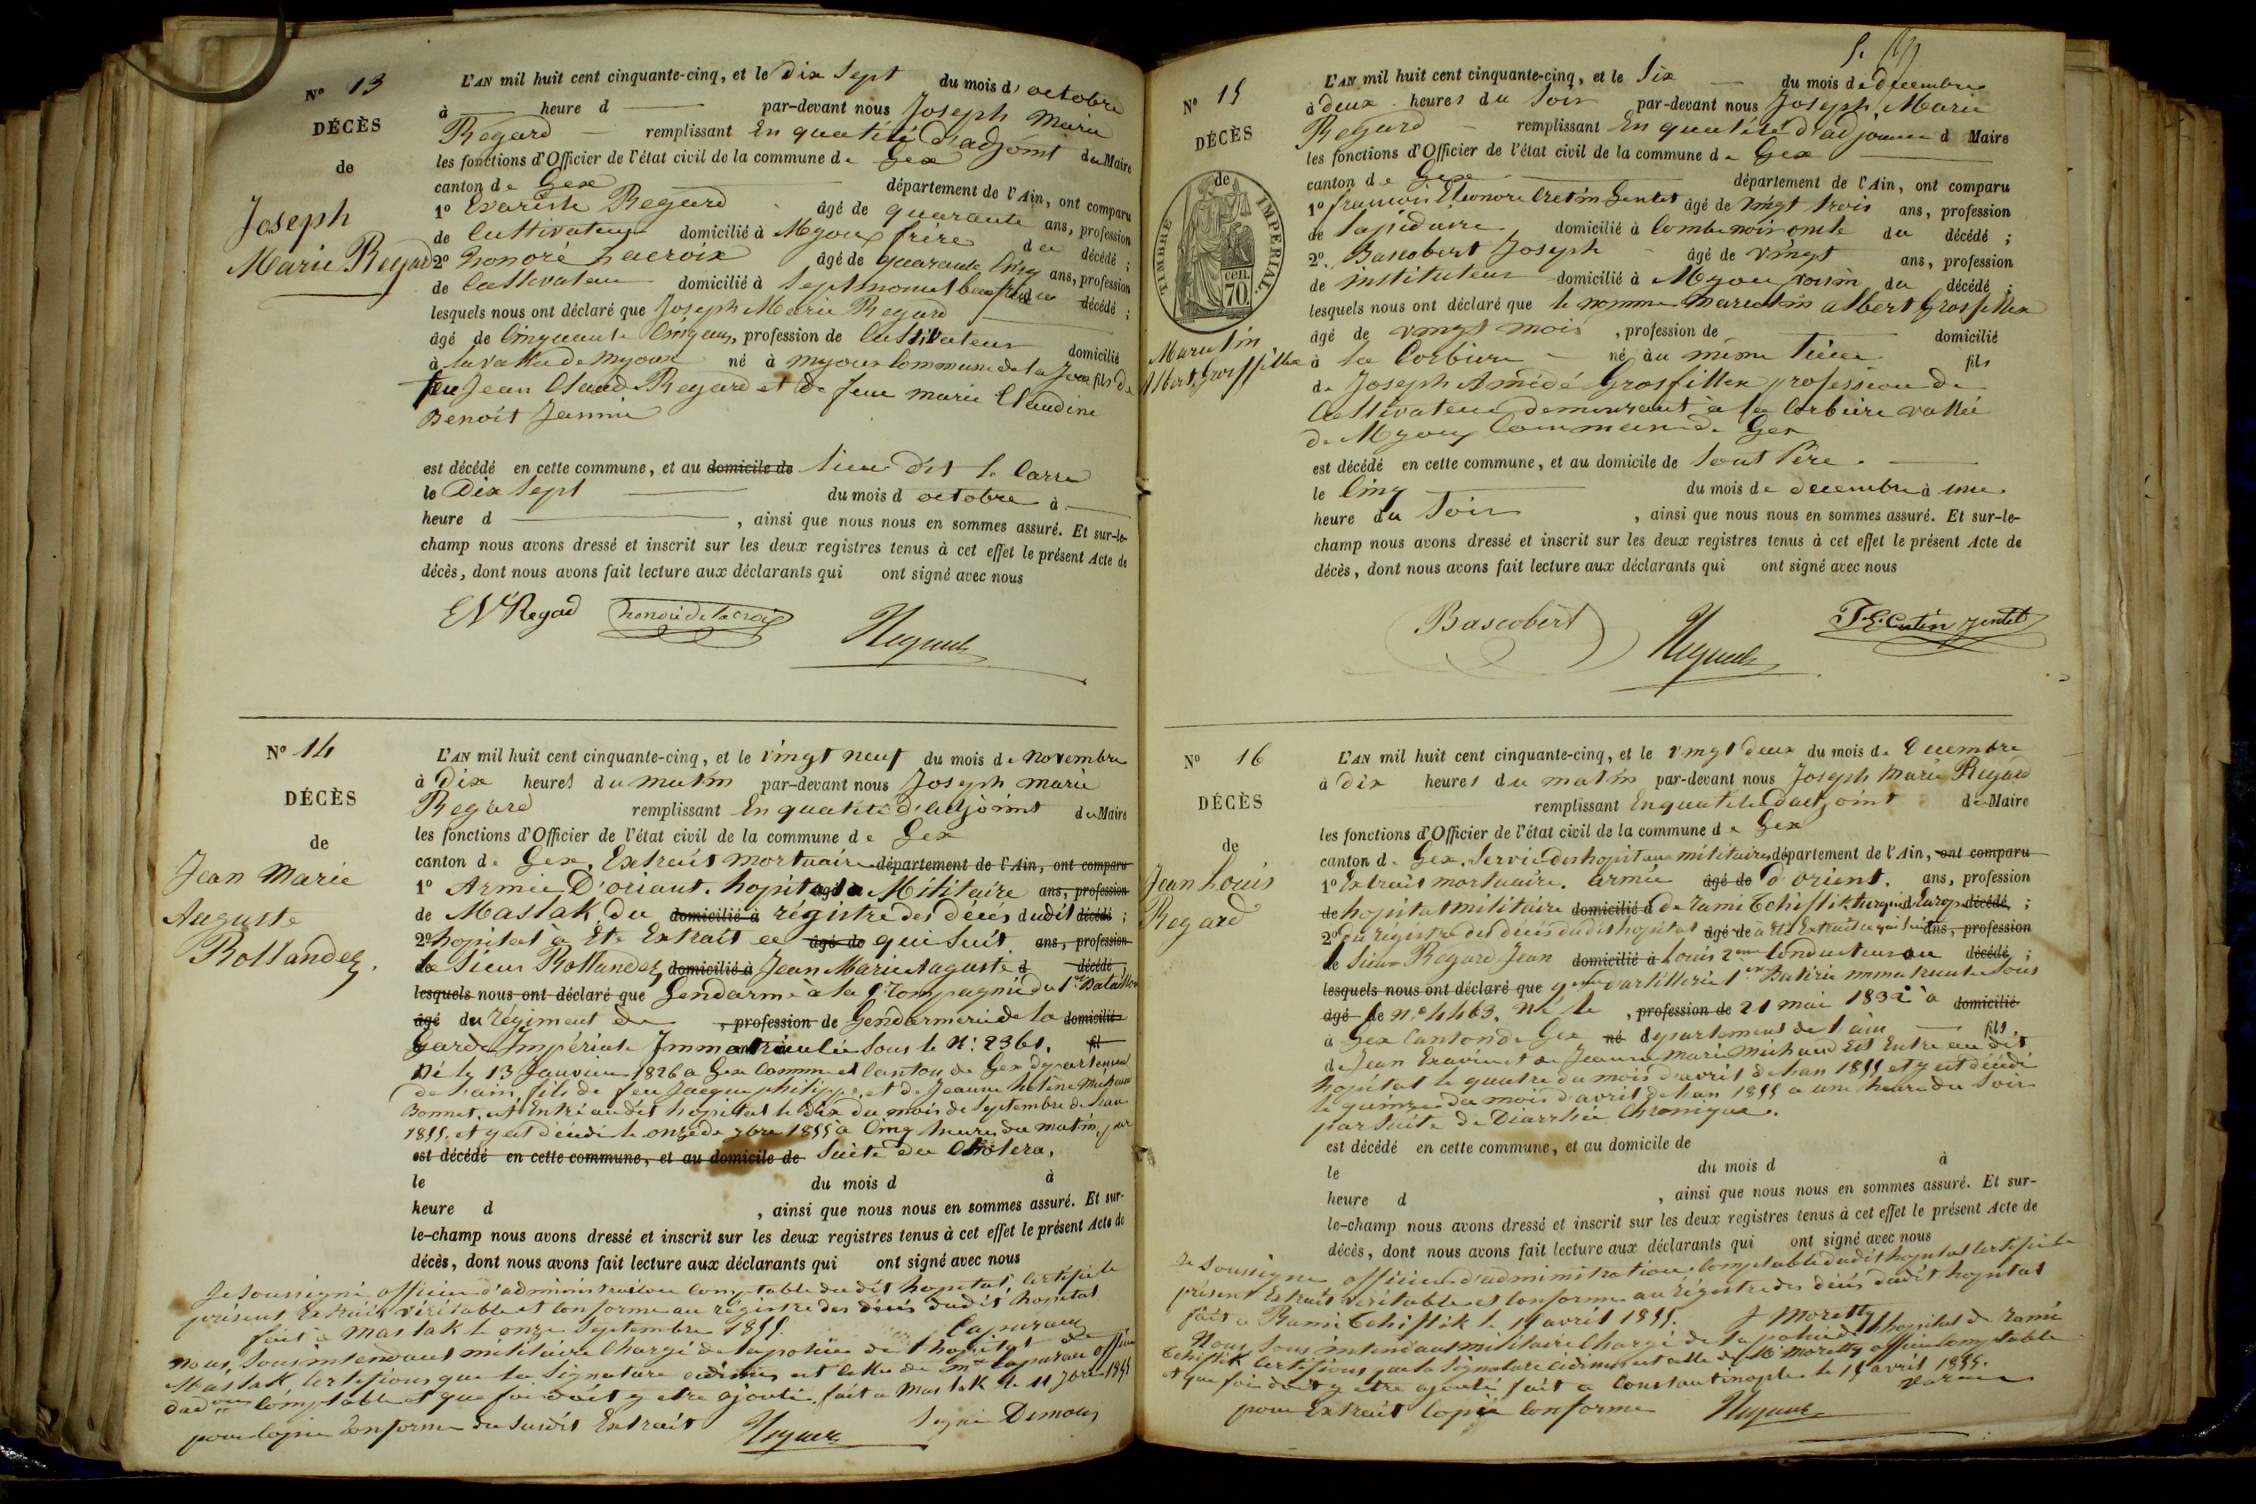 N° 13
DÉCÈS
de
Joseph
Marie Regard
L'AN mil huit cent cinquante-cinq, et le dix sept du mois d'octobre
à heure d par-devant nous Joseph Marie
Regard remplissant En qualité d'adjoint du Maire
les fonctions d'Officier de l'état civil de la commune de Gex
canton de Gex département de l'Ain, ont comparu
1° Evariste Regard âgé de quarante ans, profession
de Cultivateur domicilié à Myoux frère du décédé ;
2° honoré Lacroix âgé de quarante Cinq ans, profession
de Cultivateur domicilié à Septmoncel du décédé ;
lesquels nous ont déclaré que Joseph Marie Regard
âgé de Cinquante Cinq ans, profession de Cultivateur domicilié
à la vallée de Myoux né à myoux Commune de la Joux fils de
feu Jean Claude Regard et de feue marie Claudine
Benoit Jannin
est décédé en cette commune, et au domicile de lieu dit le Carre
le Dix Sept du mois d octobre à
heure d , ainsi que nous nous en sommes assuré. Et sur-le-
champ nous avons dressé et inscrit sur les deux registres tenus à cet effet le présent Acte de
décès, dont nous avons fait lecture aux déclarants qui ont signé avec nous
Regad honoré de lacroix
N° 14
DÉCÈS
de
Jean Marie
Auguste
Rollandez.
L'AN mil huit cent cinquante-cinq, et le vingt neuf du mois de novembre
à Dix heures du matin par-devant nous Joseph marie
Regard remplissant En qualité d'adjoint du Maire
les fonctions d'Officier de l'état civil de la commune de Gex
canton de Gex. Extrait mortuaire département de l'Ain, ont comparu
1° Armée D'oriant. hopital âgé de Militaire ans, profession
de Maslak. Du domicilié à régistre des décés dudit décédé ;
2° hopital à Eté Extrait ce âgé de qui Suit ans, profession
de Sieur Rollandez domicilié à Jean Marie Auguste d décédé ;
lesquels nous ont déclaré que Gendarme à la Compagnie du 1er Bataillon
âgé du régiment de , profession de Gendarmerie de la domicilié
Garde Impériale Immatriculé Sous le N° 2361. fil
Né le 13 Janvier 1826 à Gex Commune Canton de Gex département
de l'ain, fils de feu Jacque philippe, et de Jeanne helène Michaud
Bonnet, est Entré au dit hopital le dix du mois de Septembre de l'an
1855. et y est décédé le onze de 7bre 1855 à Cinq heures du matin, par
est décédé en cette commune, et au domicile de Suite du Choléra.
le du mois d à
heure d , ainsi que nous nous en sommes assuré. Et sur-
le-champ nous avons dressé et inscrit sur les deux registres tenus à cet effet le présent Acte de
décès, dont nous avons fait lecture aux déclarants qui ont signé avec nous
Je Soussigné officier d'administration Comptable dudit hopital Certifie le
présent Extrait véritable et Conforme au régistre des décés dudit hopital
fait à Maslak le onze Septembre 1855.
Nous, Sous intendant militaire Chargé de la police de l'hopital de
Maslak Certifions que la Signature cidessus est celle de Mr
Comptable et que foi doit y etre ajouté. fait à Maslak le 11 7bre 1855
pour Copie Conforme du Susdit Extrait Signé
N° 15
DÉCÈS
de
TIMBRE IMPERIAL.
cen.
70.
Marcelin
Albert Grosfillex
L'AN mil huit cent cinquante-cinq, et le Six du mois de décembre
à deux heures du Soir par-devant nous Joseph Marie
Regard remplissant En qualité d'adjoint d Maire
les fonctions d'Officier de l'état civil de la commune de Gex
canton de Gex département de l'Ain, ont comparu
1° francois Eléonore Cretin Gentet âgé de vingt trois ans, profession
de lapidaire domicilié à Combe noir oncle du décédé ;
2° Bascobert Joseph âgé de vingt ans, profession
de instituteur domicilié à Myoux voisin du décédé ;
lesquels nous ont déclaré que le nommé marcelin albert Grosfillex
âgé de vingt mois , profession de domicilié
à la Corbière né au même lieu fils
de Joseph Amédé Grosfillex profession de
Cultivateur demeurant à la Corbière vallée
de Myoux Commune de Gex
est décédé en cette commune, et au domicile de Sont Père.
le Cinq du mois de décembre à une
heure du Soir , ainsi que nous nous en sommes assuré. Et sur-le-
champ nous avons dressé et inscrit sur les deux registres tenus à cet effet le présent Acte de
décès, dont nous avons fait lecture aux déclarants qui ont signé avec nous
Bascobert Cretin gentet
N° 16
DÉCÈS
de
Jean Louis
Regard
L'AN mil huit cent cinquante-cinq, et le vingt deux du mois de Décembre
à dix heures du matin par-devant nous Joseph Marie Regard
remplissant En qualité d'adjoint de Maire
les fonctions d'Officier de l'état civil de la commune de Gex
canton de Gex. Service des hopitaux militaires département de l'Ain, ont comparu
1° Extrait mortuaire. armée âgé de d'orient. ans, profession
de hopital militaire domicilié à de Rami Tchiftlik turquie d'Europe décédé ;
2° du régistre des décés dudit hopital âgé de à été Extrait ce qui Suit ans, profession
de Sieur Regard Jean domicilié à Louis 2eme Conducteur au décédé ;
lesquels nous ont déclaré que d'artillerie 1ere Batterie immatriculé Sous
âgé de N° 4463. Né le , profession de 21 mai 1832 à domicilié
à Gex Canton de Gex né département de l'ain fils
de Jean et de Jeanne Marie Michaud Est Entré au dit
hopital le quatre du mois d'avril de l'an 1855 et y est décédé
le quinze du mois d'avril de l'an 1855 à une heure du Soir
par Suite de Diarrhée Chronique.
est décédé en cette commune, et au domicile de
le du mois d à
heure d , ainsi que nous nous en sommes assuré. Et sur-
le-champ nous avons dressé et inscrit sur les deux registres tenus à cet effet le présent Acte de
décès, dont nous avons fait lecture aux déclarants qui ont signé avec nous
Je Soussigné officier d'administration Comptable dudit hopital Certifie le
présent Extrait véritable et Conforme au régistre des décés dudit hopital
fait à Rami Tchiftlik le 15 avril 1855. Moretty
Nous Sous intendant militaire Chargé de la police de l'hopital de Rami
Tchiftlik Certifions que la Signature cidessus est celle de Mr Moretty officier Comptable
et que foi doit y etre ajouté fait à Constantinople le 15 avril 1855.
pour Extrait Copie Conforme